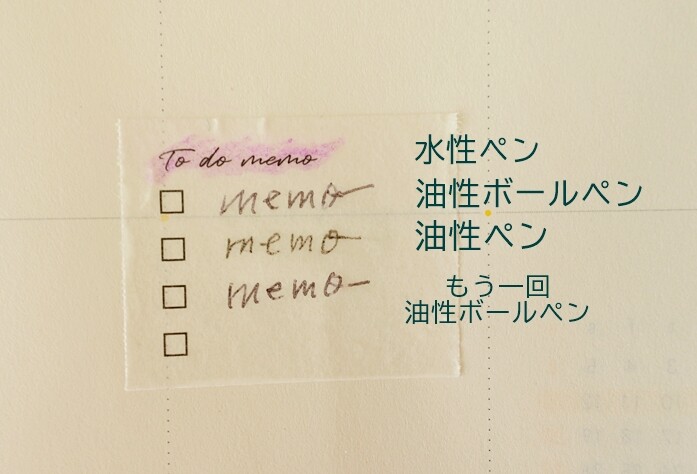 To do memo 水性ペン
memo 油性ボールペン
memo 油性ペン
memo もう一回
油性ボールペン